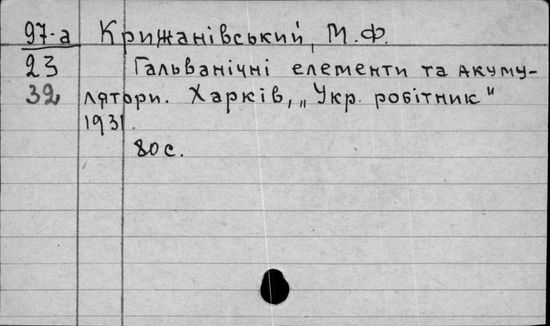 97-а Крижанівський, М.Ф.
23 Гальванічні елементи та акуму-
32 лятори. Харків, „Укр. робітник"
1931.
80 с.